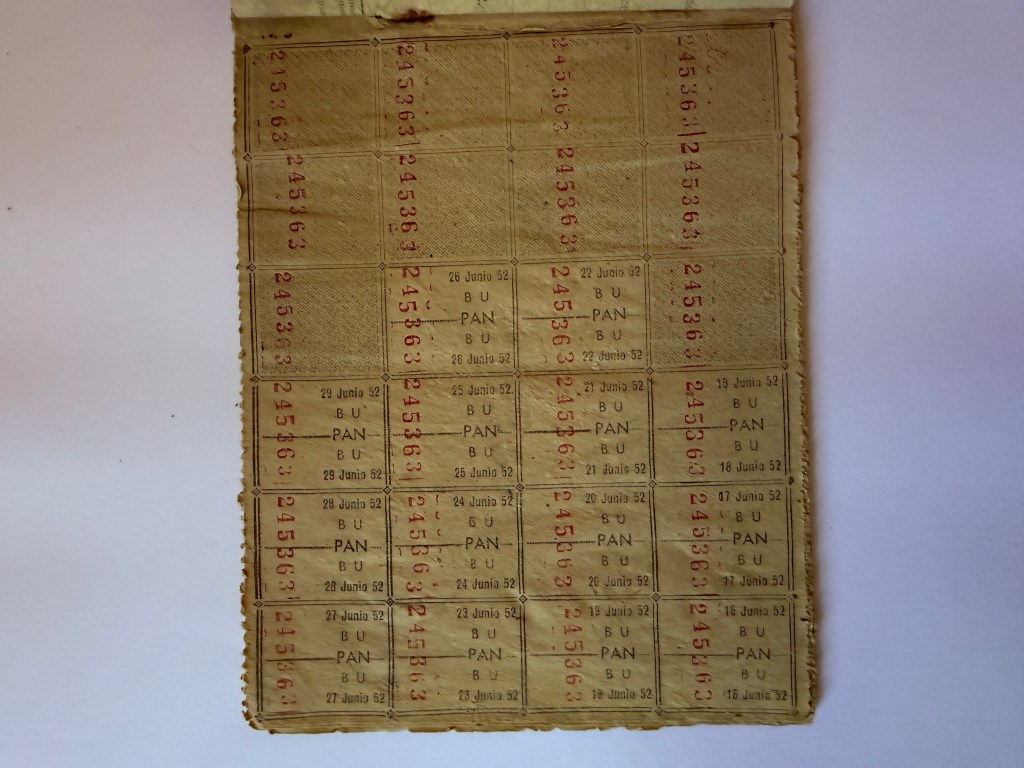 245363
245363
245363
245363
245363
245363
245363
245363
245363
245363
26 Junio 52
B U
PAN
B U
26 Junio 52
245363
22 Junio 52
B U
PAN
B U
22 Junio 52
245363
245363
29 Junio 52
B U
PAN
B U
29 Junio 52
245363
25 Junio 52
B U
PAN
B U
25 Junio 52
245363
21 Junio 52
B U
PAN
B U
21 Junio 52
245363
18 Junio 52
B U
PAN
B U
18 Junio 52
245363
28 Junio 52
B U
PAN
B U
28 Junio 52
245363
24 Junio 52
B U
PAN
B U
24 Junio 52
245363
20 Junio 52
B U
PAN
B U
20 Junio 52
245363
17 Junio 52
B U
PAN
B U
17 Junio 52
245363
27 Junio 52
B U
PAN
B U
27 Junio 52
245363
23 Junio 52
B U
PAN
B U
23 Junio 52
245363
19 Junio 52
B U
PAN
B U
19 Junio 52
245363
16 Junio 52
B U
PAN
B U
16 Junio 52